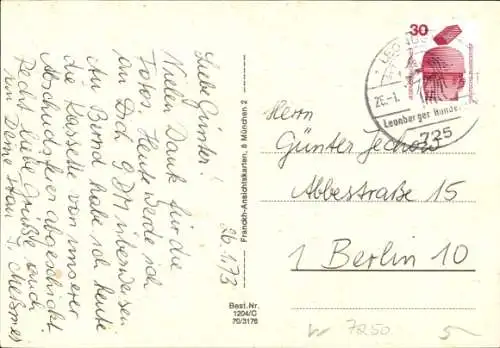 Liebe Günter!
Vielen Dank für die
Fotos. Heute werde ich
an Dich 9 DM überweisen
An Bernd habe ich heute
die Kassette von unserer
Abschiedsfeier abgeschickt
Recht liebe Grüße auch
von Deine
26.1.73
Franckh-Ansichtskarten, 8 München 2
Best.Nr.
1204/C
70/3176
30
26.-1.
Leonberger Hunde
725
Herrn
Günter Jechow
Abbestraße 15
1 Berlin 10
7250